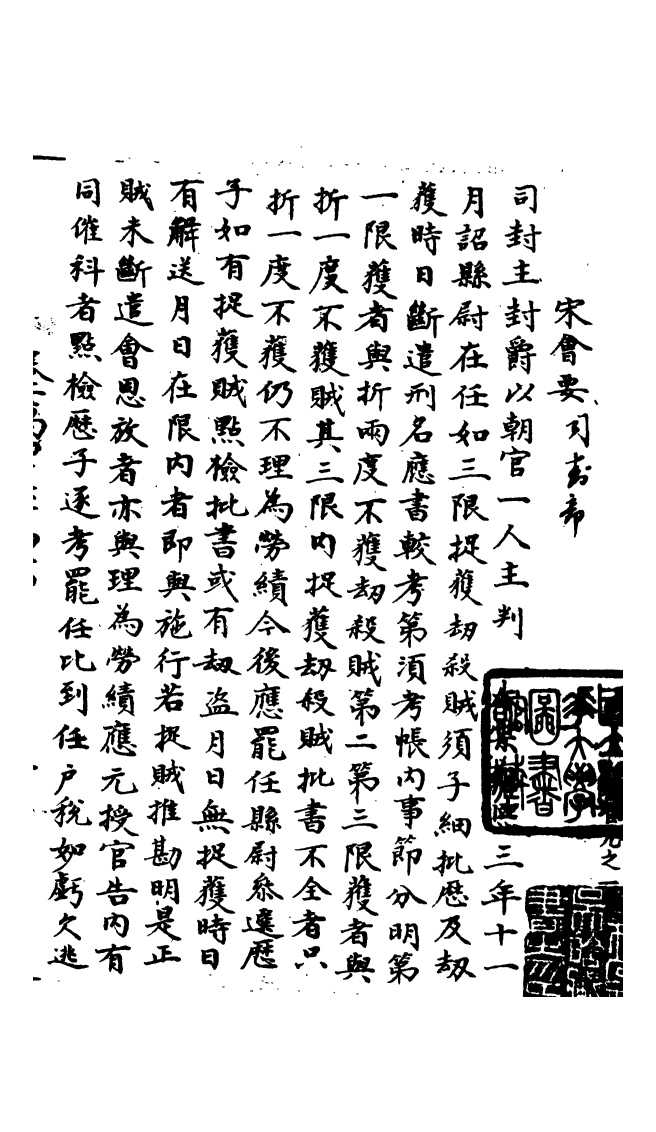 宋會要 司封部
司封主封爵以朝官一人主判
三年十一
月詔縣尉在任如三限捉獲刼殺賊須子細批歷及刼
獲時日斷遣刑名應書較考第須考帳內事節分明第
一限獲者與折兩度不獲刼殺賊第二第三限獲者與
折一度不獲賊其三限內捉獲刼殺賊批書不全者只
折一度不獲仍不理為勞績今後應罷任縣尉叅選歷
子如有捉獲賊點檢批書或有刼盜月日無捉獲時日
有解送月日在限內者即與施行若捉賊推勘明是正
賊未斷遣會恩放者亦與理為勞績應元授官告內有
同催科者點檢歷子逐考罷任比到任戶稅如虧欠逃